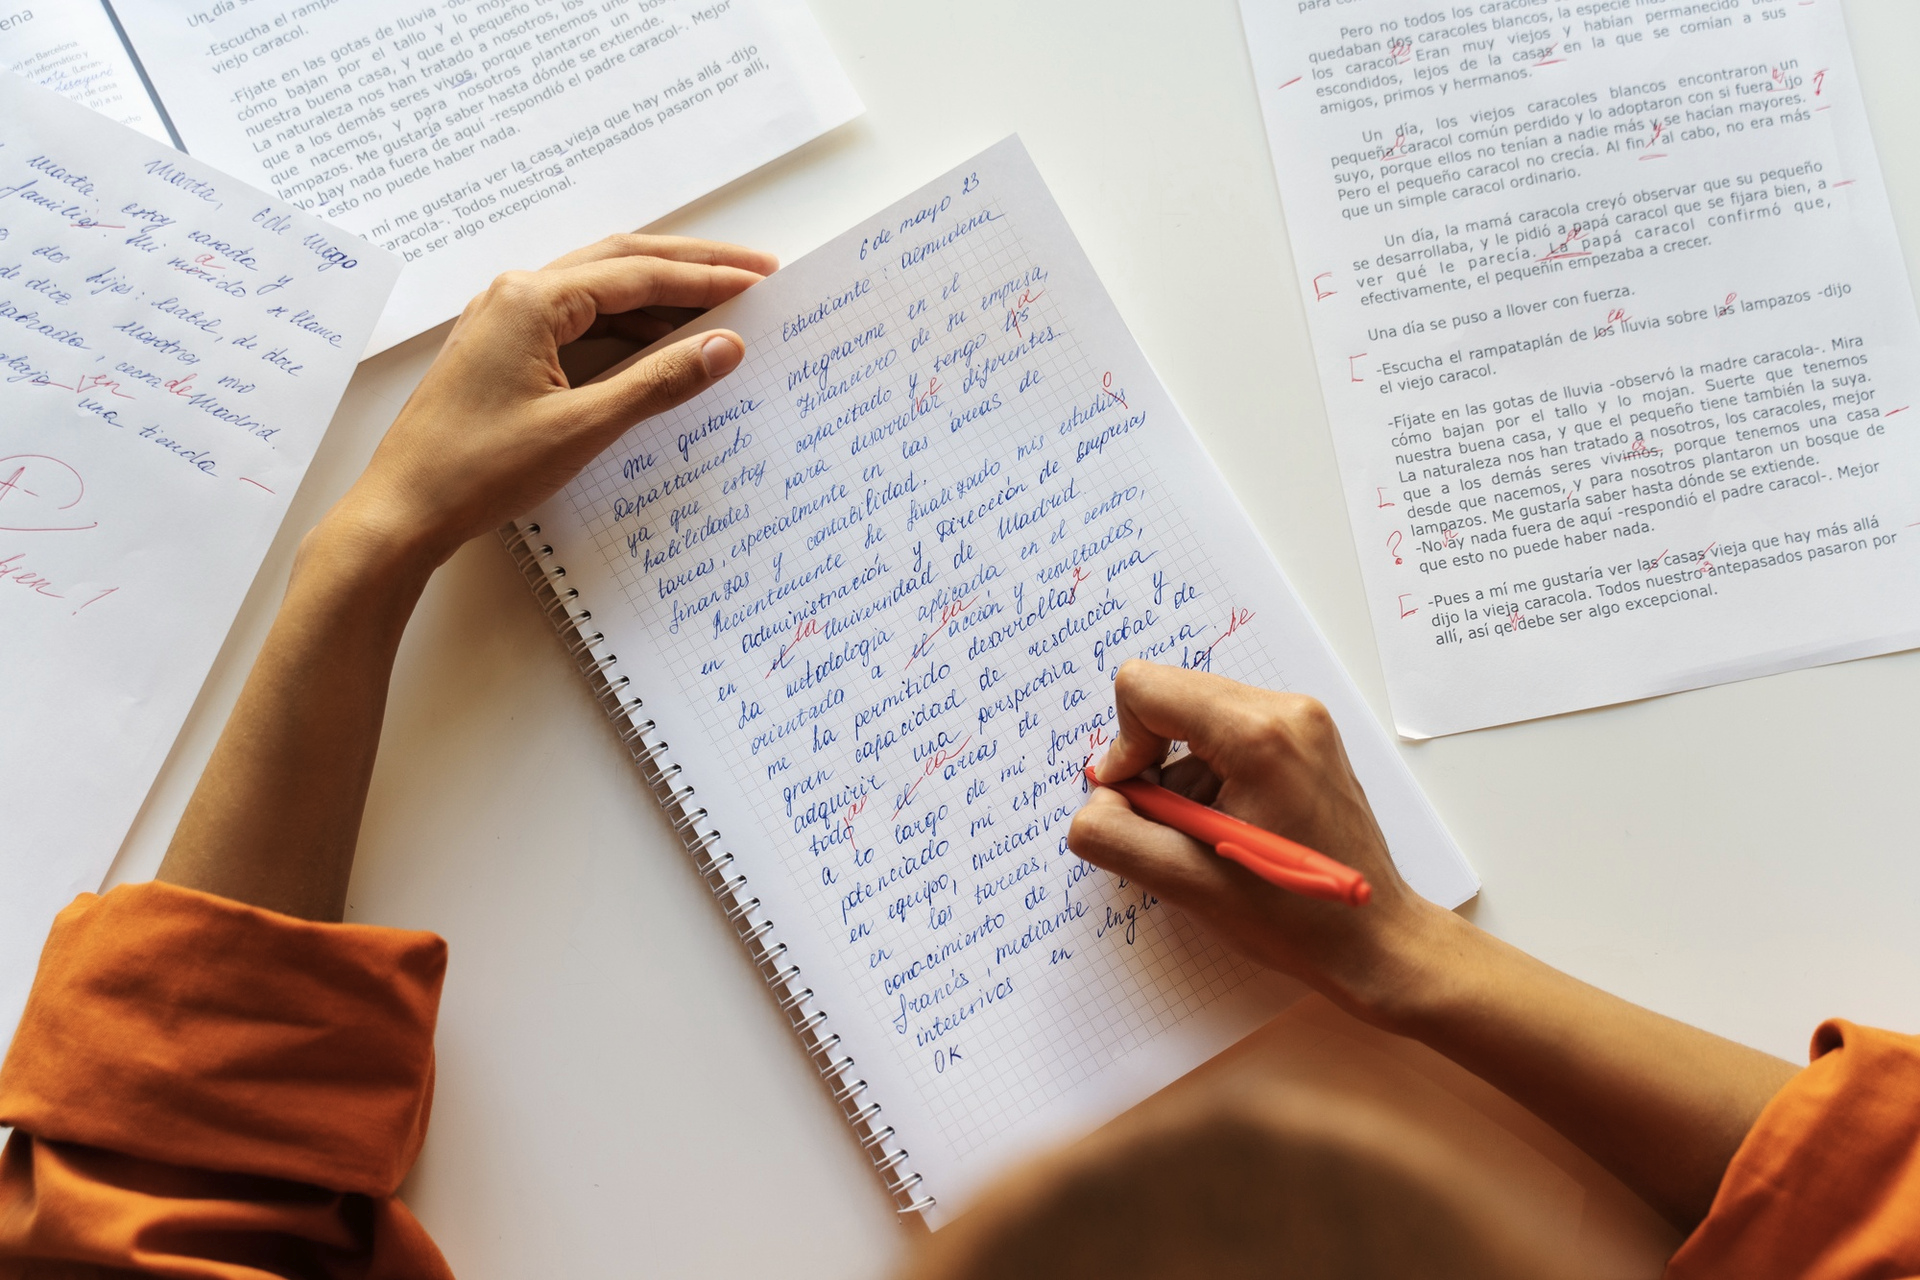 6 de mayo 23
Estudiante : Almudena
Me gustaria integrarme en el
Departamento Financiero de su empresa,
ya que estoy capacitado y tengo los
a
habilidades para desarrollar diferentes
tareas, especialmente en las áreas de
finanzas y contabilidad.
Recientemente he finalizado mis estudios
o
en administración y Dirección de Empresas
en el Universidad de Madrid.
la
La metodología aplicada en el centro,
orientada a el acción y resultados,
la
me ha permitido desarrollas una
r
gran capacidad de y
adquirir una perspectiva global de
todo el areas de la empresa.
as
la
he
a lo largo de mi
potenciado mi espiritu
en equipo, iniciativa
en las tareas,
conocimiento de
francés, mediante
intensivos en
OK
Marta, 6 de mayo
Marta. estoy casada y
familia. Mi marido se llama
dos hijos: Isabel, de doce
de diez. Nosotros
cerca de Madrid.
en una tienda
A-
Un día
-Escucha el
viejo caracol.
-Fíjate en las gotas de lluvia
cómo bajan por el tallo y lo
nuestra buena casa, y que el pequeño
La naturaleza nos han tratado a nosotros, los
que a los demás seres vivos, porque tenemos una
que nacemos, y para nosotros plantaron un
lampazos. Me gustaría saber hasta dónde se extiende.
-No hay nada fuera de aquí -respondió el padre caracol-. Mejor
esto no puede haber nada.
a mí me gustaría ver la casa vieja que hay más allá -dijo
caracola-. Todos nuestros antepasados pasaron por allí,
be ser algo excepcional.
Pero no todos los caracoles
quedaban dos caracoles blancos, la especie
los caracol. Eran muy viejos y habían permanecido
escondidos, lejos de la casas en la que se comían a sus
amigos, primos y hermanos.
Un día, los viejos caracoles blancos encontraron un
pequeña caracol común perdido y lo adoptaron con si fuera ijo
suyo, porque ellos no tenían a nadie más y se hacían mayores.
Pero el pequeño caracol no crecía. Al fin y al cabo, no era más
que un simple caracol ordinario.
Un día, la mamá caracola creyó observar que su pequeño
se desarrollaba, y le pidió a papá caracol que se fijara bien, a
ver qué le parecía. La papá caracol confirmó que,
efectivamente, el pequeñín empezaba a crecer.
Una día se puso a llover con fuerza.
-Escucha el rampataplán de los lluvia sobre las lampazos -dijo
la
el viejo caracol.
-Fíjate en las gotas de lluvia -observó la madre caracola-. Mira
cómo bajan por el tallo y lo mojan. Suerte que tenemos
nuestra buena casa, y que el pequeño tiene también la suya.
La naturaleza nos han tratado a nosotros, los caracoles, mejor
que a los demás seres vivimos, porque tenemos una casa
desde que nacemos, y para nosotros plantaron un bosque de
lampazos. Me gustaría saber hasta dónde se extiende.
-No ay nada fuera de aquí -respondió el padre caracol-. Mejor
?
que esto no puede haber nada.
-Pues a mí me gustaría ver las casas vieja que hay más allá
dijo la vieja caracola. Todos nuestro antepasados pasaron por
allí, así qe debe ser algo excepcional.